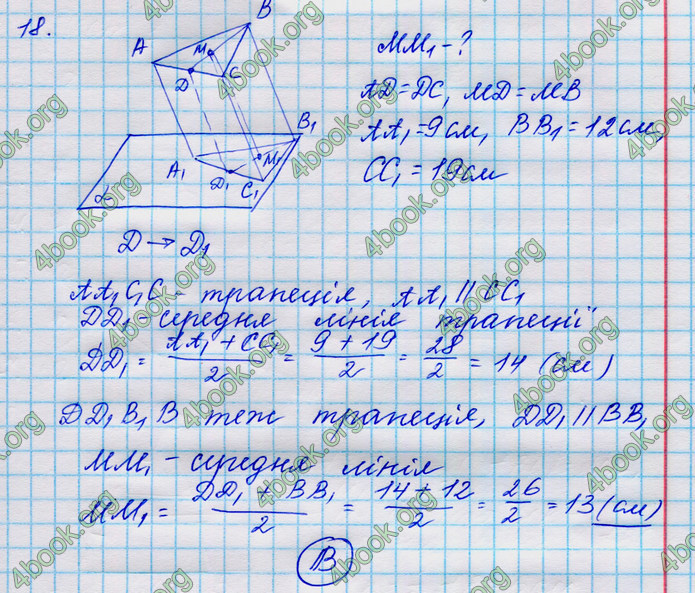 18.
B
A
M
D
C
B₁
A₁
M₁
D₁
C₁
α
MM₁ - ?
AD = DC, MD = MB
AA₁ = 9 см, BB₁ = 12 см,
CC₁ = 19 см
D → D₁
AA₁C₁C - трапеція, AA₁ || CC₁
DD₁ - середня лінія трапеції
DD₁ = (AA₁ + CC₁)/2 = (9 + 19)/2 = 28/2 = 14 (см)
DD₁B₁B теж трапеція, DD₁ || BB₁
MM₁ - середня лінія
MM₁ = (DD₁ + BB₁)/2 = (14 + 12)/2 = 26/2 = 13 (см)
В
4book.org